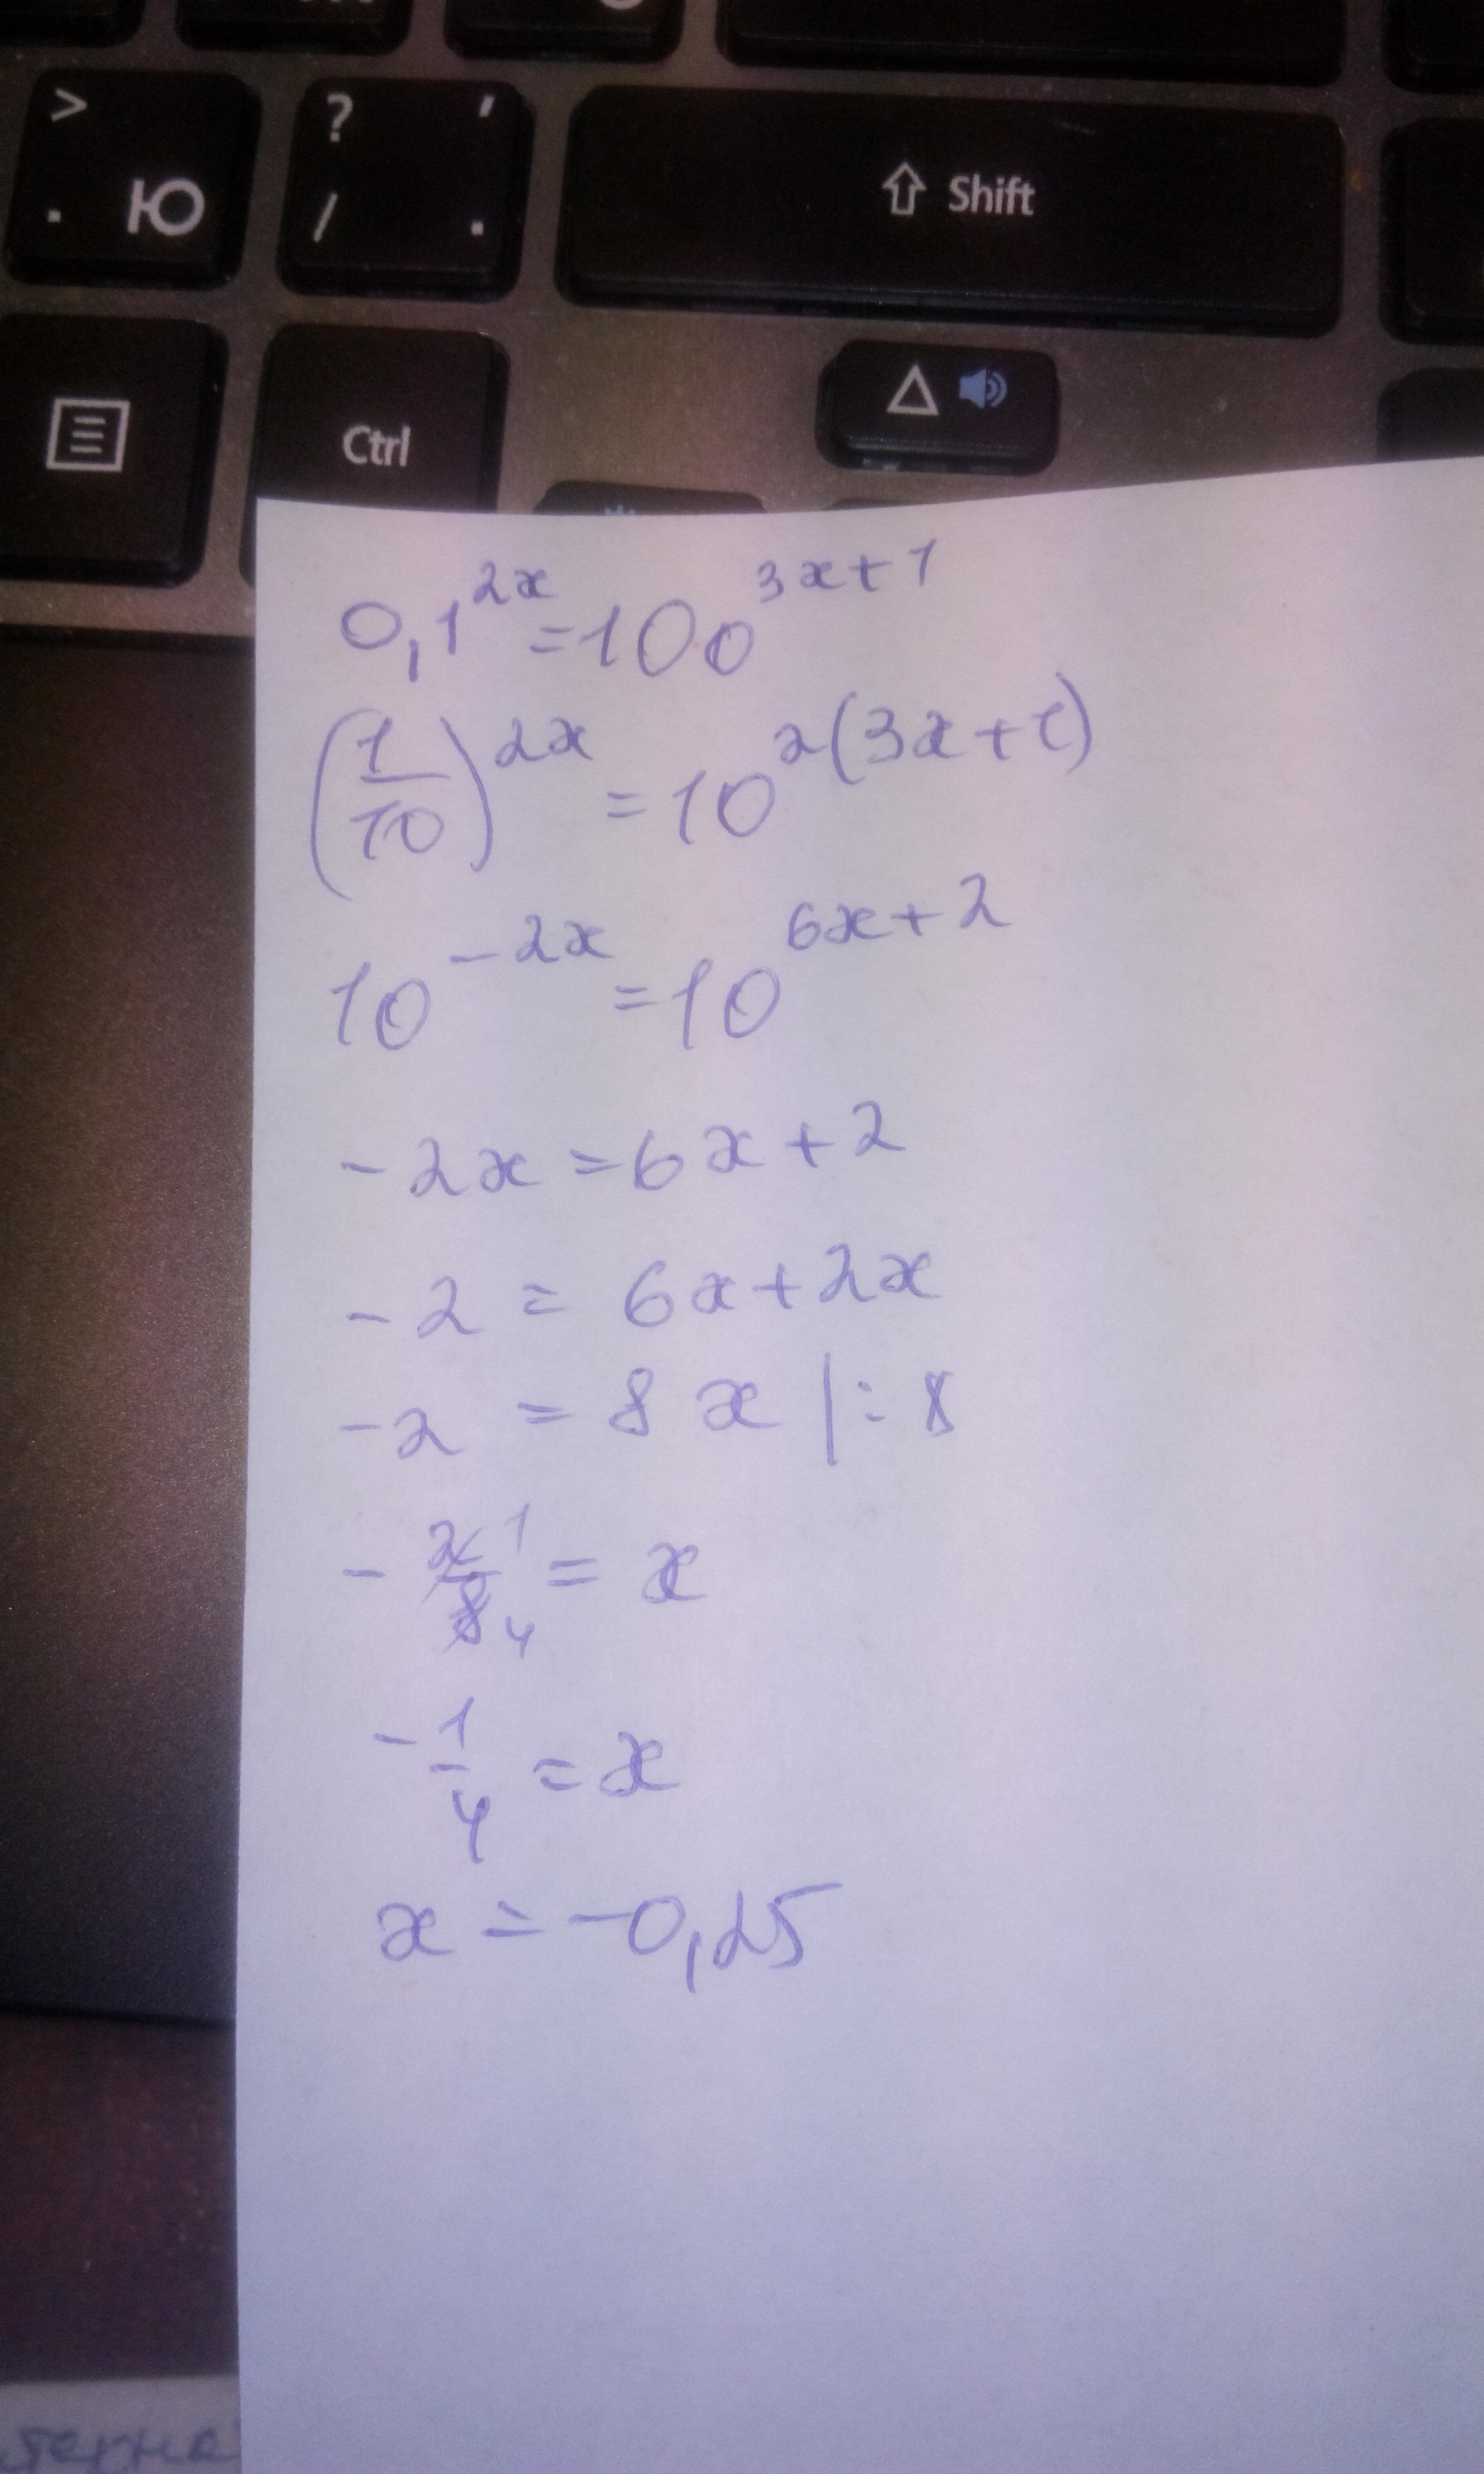 > . Ю
? , / .
Shift
Ctrl
0,1^{2x}=100^{3x+1}
(1/10)^{2x}=10^{2(3x+1)}
10^{-2x}=10^{6x+2}
-2x=6x+2
-2=6x+2x
-2=8x|:8
-2/8 1 4=x
-1/4=x
x=-0,25